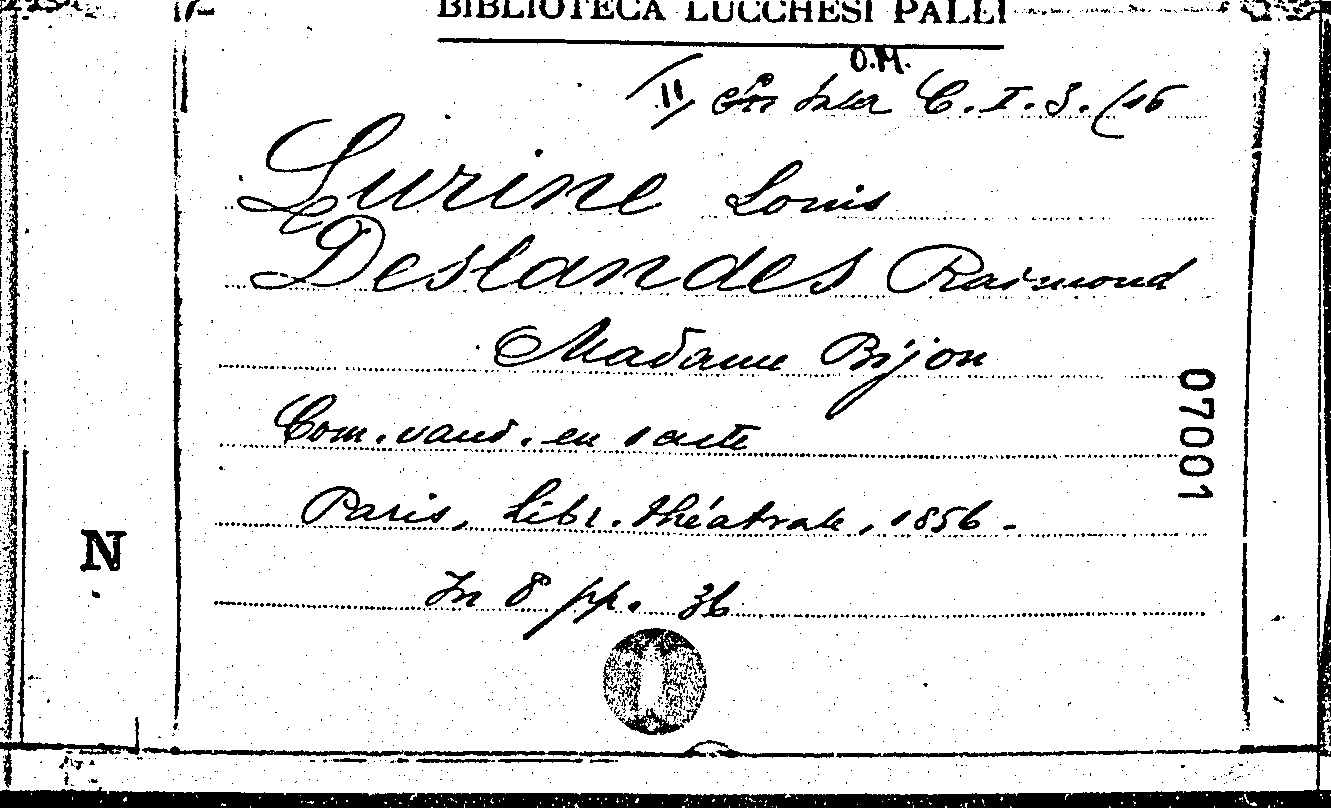 BIBLIOTECA LUCCHESI PALLI
O.M.
II C. I. 3. (16
Lurine Louis
Deslandes Raimond
Madame Bijon
Com. vaud. en 1 acte
Paris, Libr. théatrale, 1856 -
In 8° pp. 36
07001
N